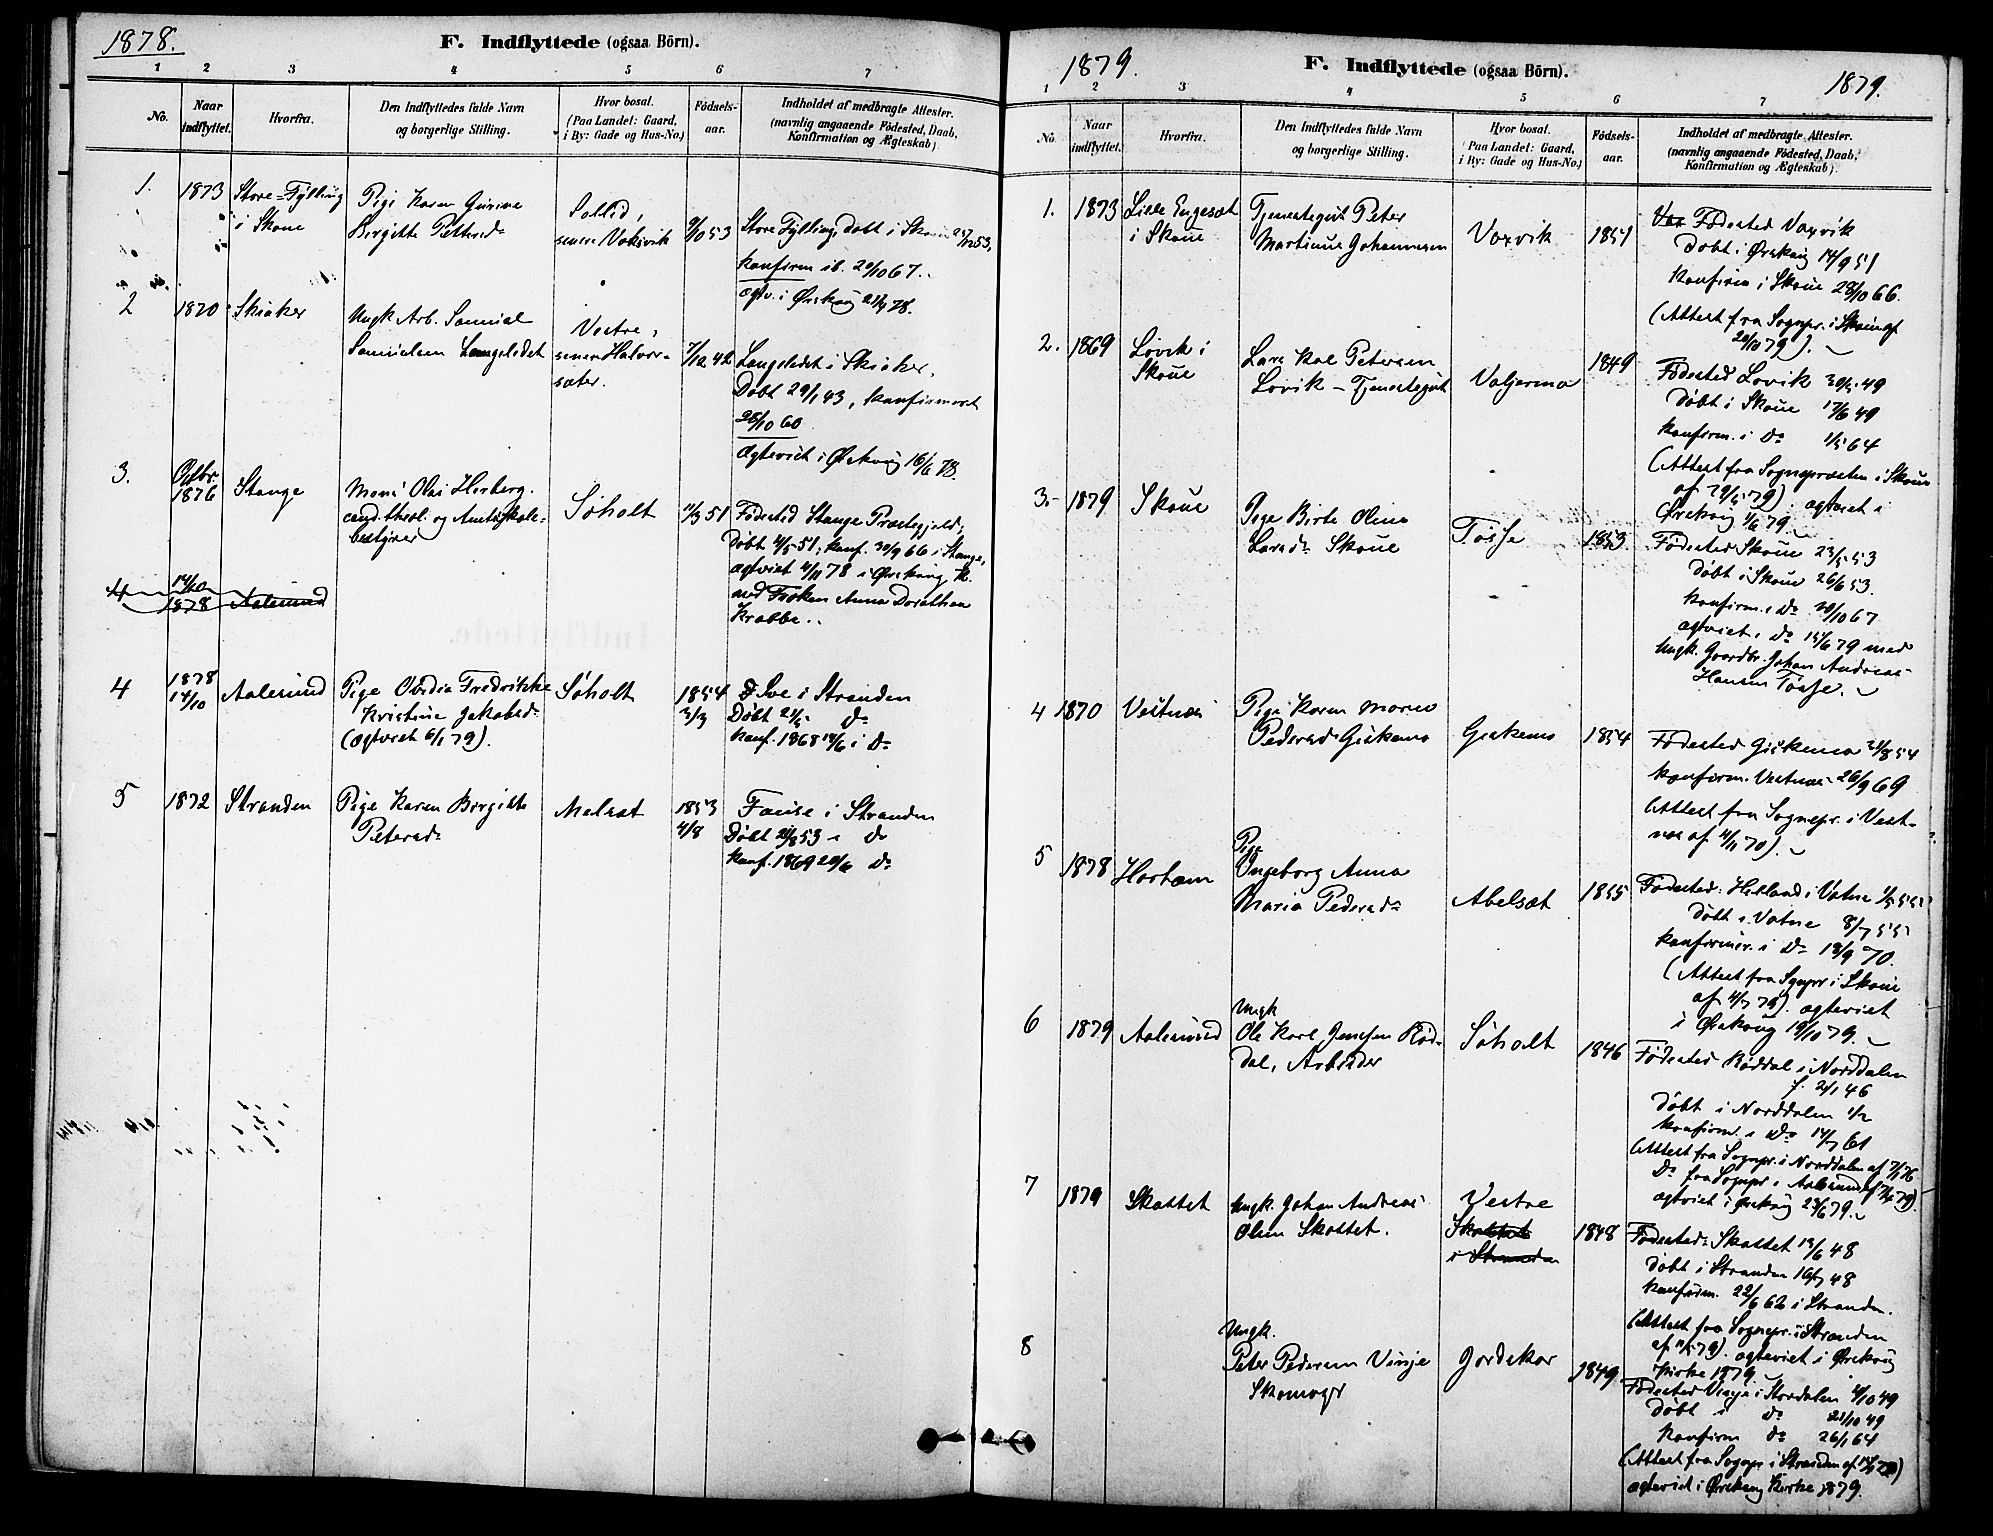 1878.
F. Indflyttede (ogsaa Börn).
1 2 3 4 5 6 7
No.
Naar indflyttet.
Hvorfra.
Den Indflyttedes fulde Navn
og borgerlige Stilling.
Hvor bosat.
(Paa Landet: Gaard,
i By: Gade og Hus-No.)
Födsels-
aar.
Indholdet af medbragte Attester.
(navnlig angaaende Födested, Daab,
Konfirmation og Ægteskab)
1. 1873 Store-Fylling
i Skoue
Pige Karen Gurine
Birgitte Pettersd
senere Vaksvik
53
Store Fylling, døbt i Skoue 53,
konfirm ib. 20/10 67.
ægtv. i Ørskoug 78.
2 1870 Skiaker
Ungk Arb. Samuel
Samuelsen Langeledet
Vestre,
senere Halvor-
sæter.
7/12 42
Langeledet i Skiaker.
Døbt 29/1 43, konfirmert
/10 60
ægteviet i Ørskoug 16/6 78.
3. Octbr.
1876 Stange
Olai Herberg.
cand. theol. og Amtsskole-
bestyrer
Søholt
/3 51
Fødested Stange Præstegjeld,
Døbt 4/5 51, konf. 30/9 66 i Stange,
ægtviet 4/11 78 i Ørskoug K.
med Frøken Anna Dorothea
Krabbe..
4 14/10
1878 Aalesund
4 1878
14/10 Aalesund
Pige Obedia Fredrikke
Kristine Jakobsd.
(ægtviet 6/1 79).
Søholt
1854
3/3
i Stranden
Døbt 21/5 do
konf. 1868 14/6 i do
5 1872 Stranden
Pige Karen Birgitte
Petersd.
Melsæt
1853
4/8
Fause i Stranden
Døbt 53 i do
konf. 1869 20/6 do
1879.
F. Indflyttede (ogsaa Börn).
1879.
1 2 3 4 5 6 7
No.
Naar
indflyttet.
Hvorfra.
Den Indflyttedes fulde Navn
og borgerlige Stilling.
Hvor bosat.
Paa Landet: Gaard,
i By: Gade og Hus-No.)
Födsels-
aar.
Indholdet af medbragte Attester.
(navnlig angaaende Födested, Daab,
Konfirmation og Ægteskab)
1. 1873 Lille Engesæt
i Skoue
Tjenestegut Peter
Martinus Johannesen
Vaxvik
1851
Fødested Vaxvik
Døbt i Ørskoug 14/9 51
Konfirm i Skoue 28/10 66.
(Attest fra Sognepr. i Skoue af
20/10 79).
2. 1869 Løvik i
Skoue
Lars Kol Petersen
Løvik - Tjenestegut
Valjerma
1849
Fødested Løvik 49
Døbt i Skoue 17/6 49
konfirm. i do 1/5 64
(Attest fra Sognepræsten i Skoue
af 29/5 79). ægtviet i
Ørskoug 1/6 79.
3. 1879 Skoue
Pige Birte Olina
Larsd. Skoue
Tøsse
1853
Fødested Skoue 23/5 53
døbt i Skoue 26/6 53.
konfirm. i do /10 67
ægtviet i do 15/6 79 med
Ungk. Gaardbr. Johan Andreas
Hansen Tøsse.
4 1870 Vestnæs
Pige Karen Marie
Pedersd Giskemo
Giskemo
1854
Fødested Giskemo 21/8 54
konfirm. Vestnæs 26/9 69
(Attest fra Sognepr. i Vest-
næs af 4/11 70).
5 1878 Harham
Pige
Ingeborg Anna
Maria Pedersd.
Abelsæt
1855
Fødested: Helland i Vatne 1/5 55
døbt i Vatne 8/7 55
konfirmer. i do 18/9 70.
(Attest fra Sognpr i Skoue
af 4/7 79). ægteviet
i Ørskoug 19/10 79.
6 1879 Aalesund
Ungk
Ole Karl Jensen Rød-
dal, Arbeider
Søholt
1846
Fødested Røddal i Norddalen
f. 21/1 46
Døbt i Norddalen 1/2
konfirm. i do 14/7 61
(Attest fra Sognpr. i Norddalen af 7/1 76
do fra Sognpr i Aalesund af 79).
ægtviet i Ørskoug 79.
7 1879 Skottet
Ungk. Johan Andreas
Olsen Skottet.
Vestre
Skottet
i Stranden
1848
Fødested: Skottet 19/6 48
døbt i Stranden 16/7 48
konfirm. 22/6 62 i Stranden.
(Attest fra Sognepr. i Stranden
af /5 79). ægteviet i Ørskoug
kirke 1879.
8
Ungk.
Peter Pedersen Vinje
Skomager
Jordekor
1849.
Fødested Vinje i Stordalen 4/10 49
døbt i do 21/10 49
konfirm do 26/1 64
(Attest fra Sognpr i Stranden af 79)
ægteviet i Ørskoug Kirke 1879.